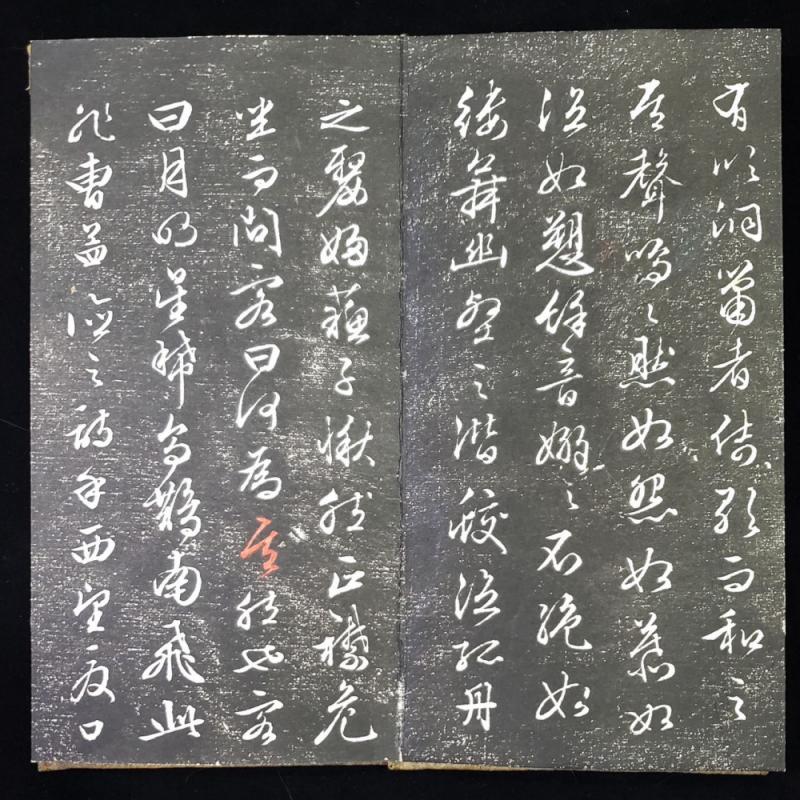 有吹洞簫者倚歌而和之
其聲嗚々然如怨如慕如
泣如愬餘音嫋々不絶如
縷舞幽壑之潛蛟泣孤舟
之嫠婦蘇子愀然正襟危
坐而問客曰何為其然也客
曰月明星稀烏鵲南飛此
非曹孟德之詩乎西望夏口